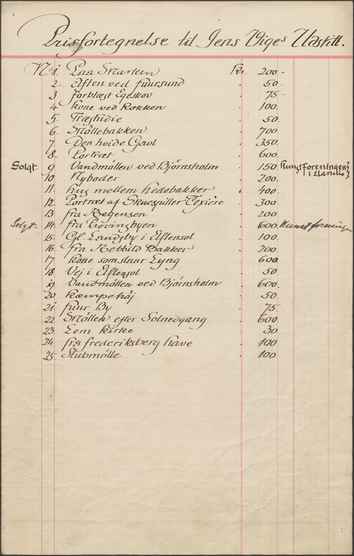 Prisfortegnelse til Jens Viges Udstill.
No 1. Paa Marken Kr. 200 -
2. Aften ved Fuursund 50 -
3. Forblæst Egeskov 75 -
4. Kone ved Rokken 100.
5. Træstudie 50
6. Møllebakken 700
7. Den hvide Gavl 350
8. Portræt 600
Solgt. 9. Vandmøllen ved Bjørnsholm 150 Kunstforeningen
10. Nyboder 200.
11. Hus mellem hedebakker 400
12. Portræt af Skuespiller Texière 300
13. fra Aagensen 200
Solgt. 14. fra 600 Kunstforening
15. Landsby i Aftensol 100
16. fra Rebbild Bakker 200
17. Kone som slaar Lyng 600
18. Vej i Aftensol 50
19. Vandmøllen ved Bjørnsholm 600
20. Kæmpehøj 50
21. Fuur By 75
22. Møllen efter Solnedgang 600
23. Lem Kirke 30
24. fra Frederiksberg have 100
25. Stubmølle 100